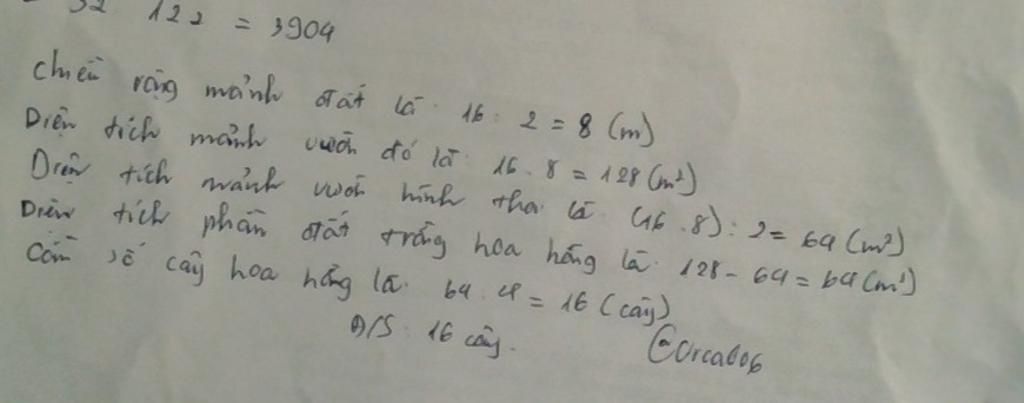 32 122 = 3904
chiều rộng mảnh đất là: 16 : 2 = 8 (m)
Diện tích mảnh vườn đó là: 16 . 8 = 128 (m²)
Diện tích mảnh vườn hình thoi là (16 . 8) : 2 = 64 (m²)
Diện tích phần đất trồng hoa hồng là: 128 - 64 = 64 (m²)
Cần số cây hoa hồng là: 64 : 4 = 16 (cây)
Đ/S: 16 cây.
@Orca006